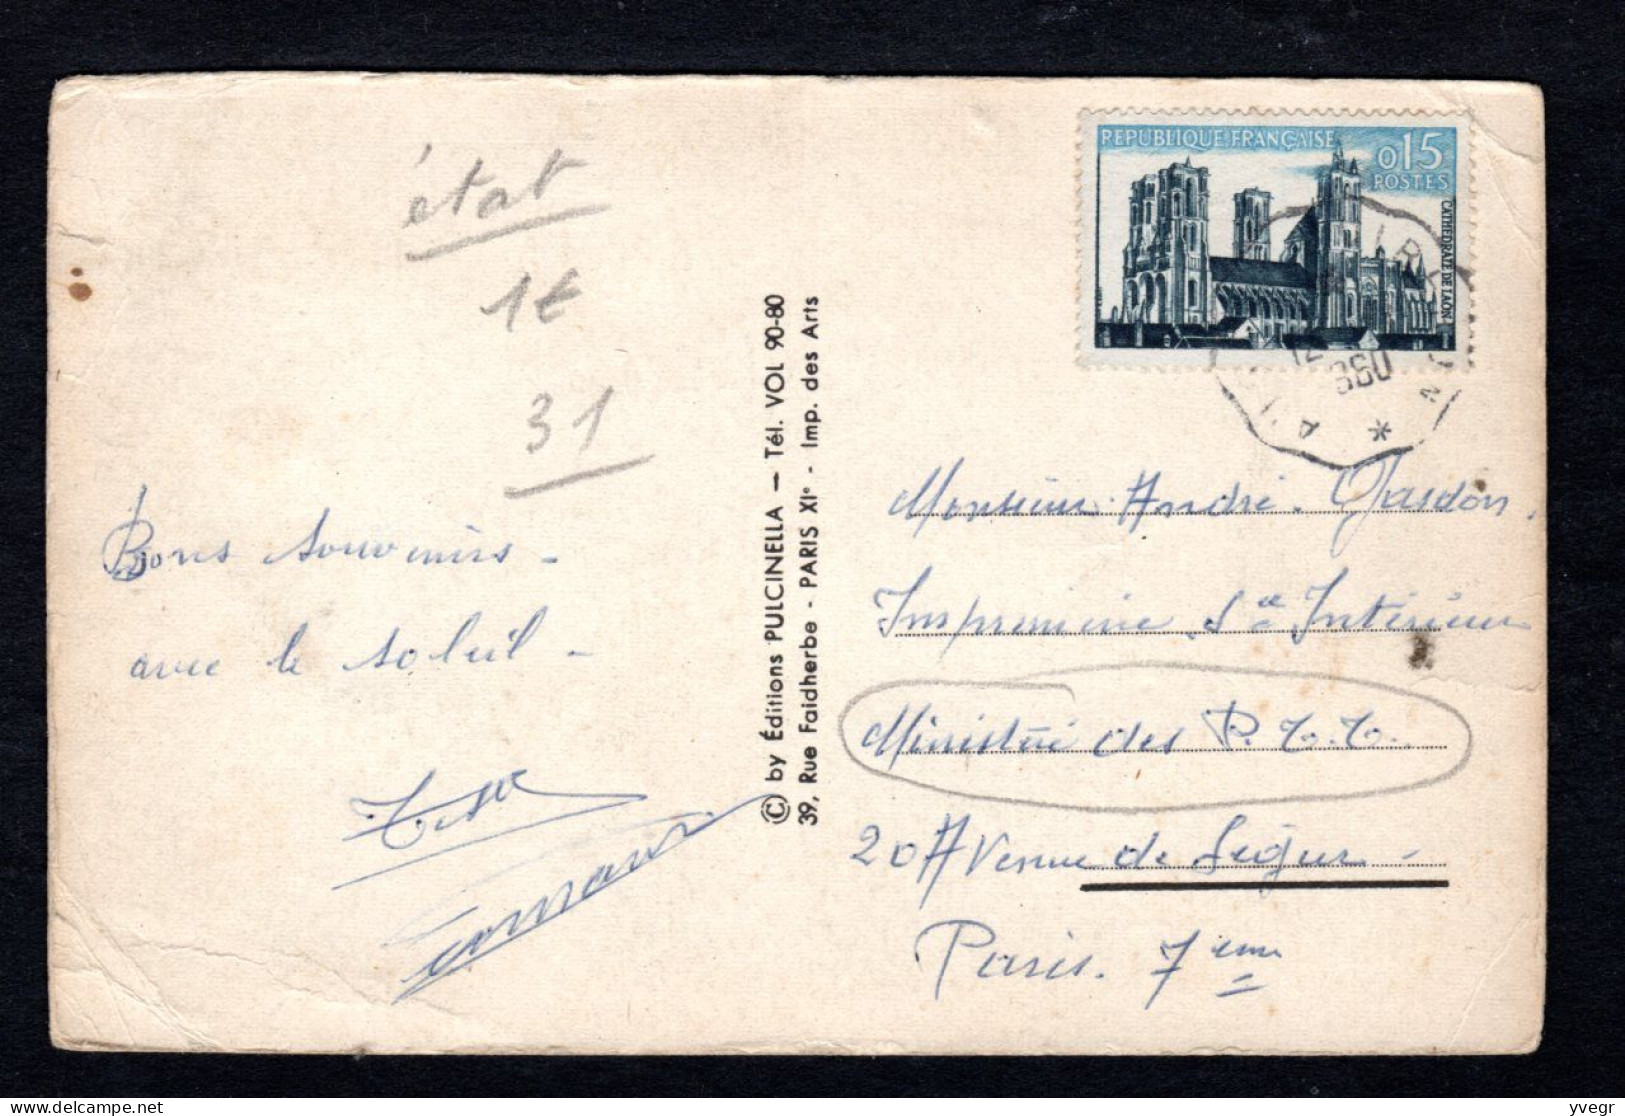 état
1€
31
Bons souvenirs -
avec le soleil -
© by Éditions PULCINELLA — Tél. VOL 90-80
39, Rue Faidherbe - PARIS XIe - Imp. des Arts
REPUBLIQUE FRANÇAISE
0,15
POSTES
CATHÉDRALE DE LAON
12
960
Monsieur André
Imprimerie Sce Intérieur
Ministère des P.T.T.
20 Avenue de Ségur -
Paris. 7eme
yvegr